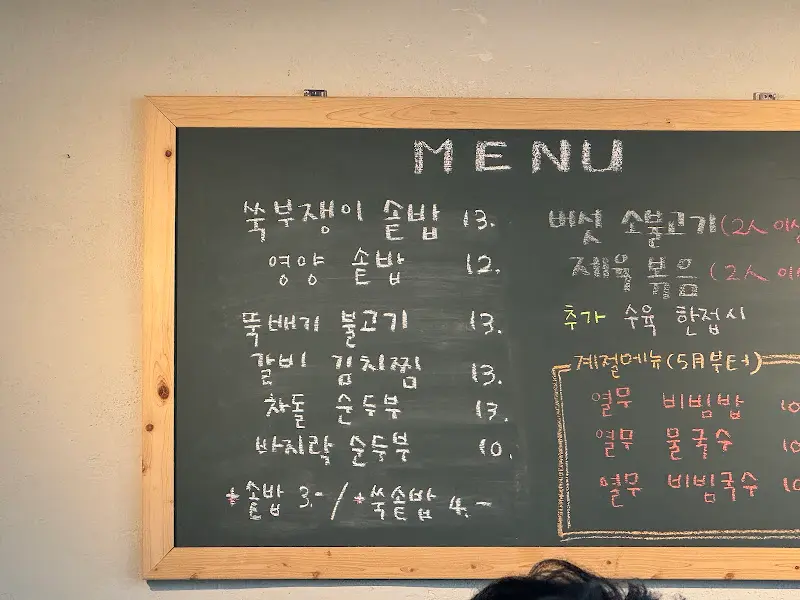 MENU
쑥부쟁이 솥밥 13.
영양 솥밥 12.
뚝배기 불고기 13.
갈비 김치찜 13.
차돌 순두부 13.
바지락 순두부 10.
+솥밥 3.- / +쑥솥밥 4.-
버섯 소불고기(2人 이상
제육 볶음 (2人 이상
추가 수육 한접시
계절메뉴(5月부터)
열무 비빔밥 10
열무 물국수 10
열무 비빔국수 10